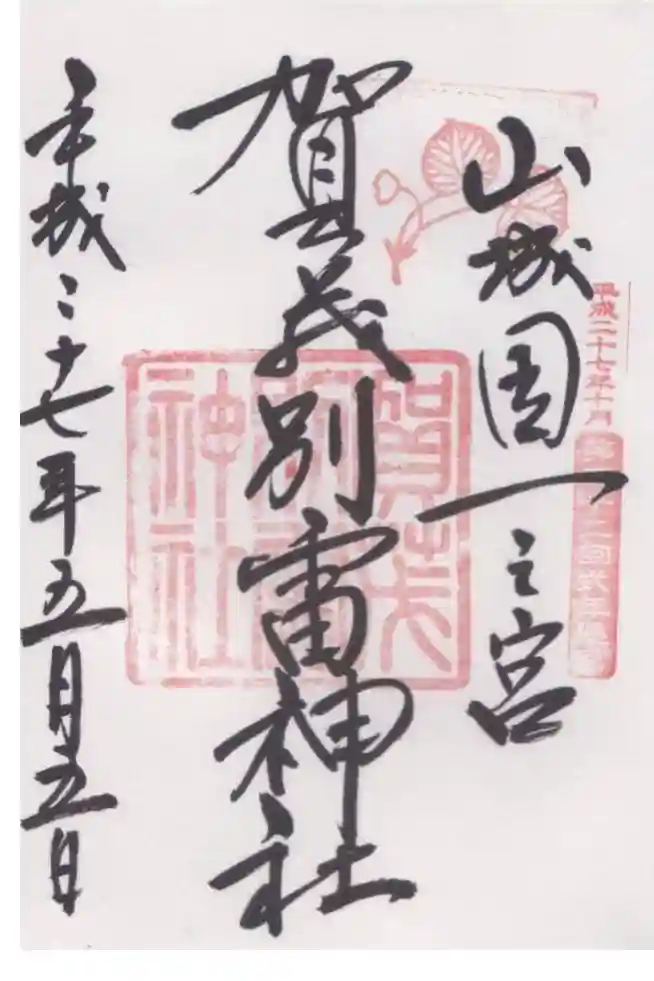 平成二十七年十月
第四十二回式年遷宮
山城国一之宮
賀茂別雷神社
賀茂別雷神社
平成二十七年五月五日